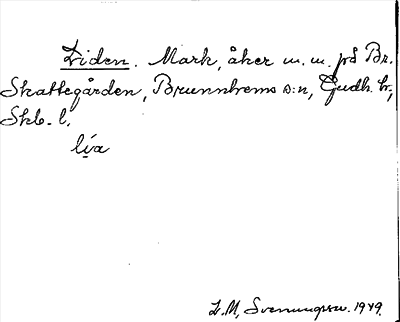 Liden. Mark, åker m. m. på Br.
Skattegården, Brunnhems s:n, Gudh. hr,
Skb. l.
lia
L. M. Svenungsson. 1949.